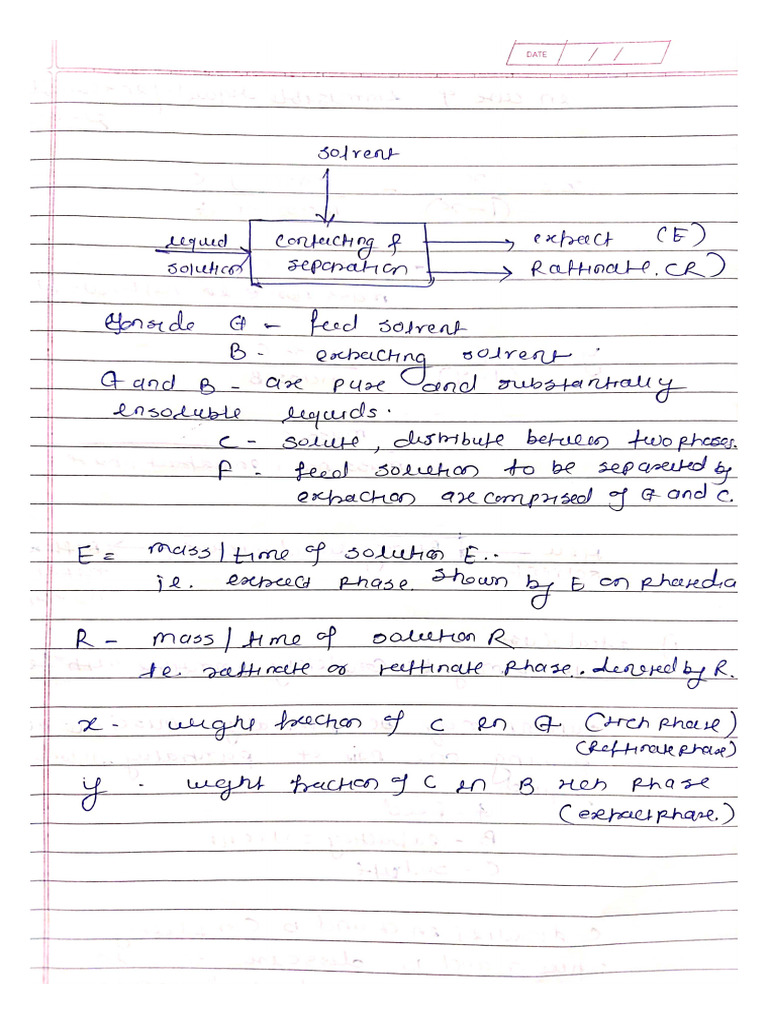 DATE / /
solvent
liquid contacting & extract (E)
solution separation Raffinate (R)
Conside A - feed solvent
B - extracting solvent.
A and B - are pure and substantially
insoluble liquids.
C - solute, distribute between two phases.
F - feed solution to be separated by
extraction are comprised of A and C.
E = mass/time of solution E..
i.e. extract phase shown by E on phasedia
R - mass/time of solution R
i.e. raffinate or raffinate phase. denoted by R.
x - weight fraction of C in A (rich phase)
(Raffinate phase)
y - weight fraction of C in B rich phase
(extract phase.)